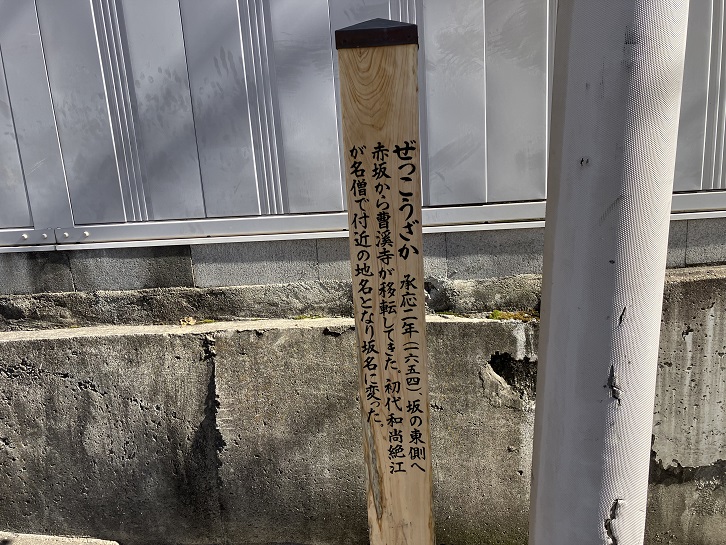 ぜっこうざか 承応二年(一六五四)坂の東側へ
赤坂から曹溪寺が移転してきた。初代和尚絶江
が名僧で付近の地名となり坂名に変った。